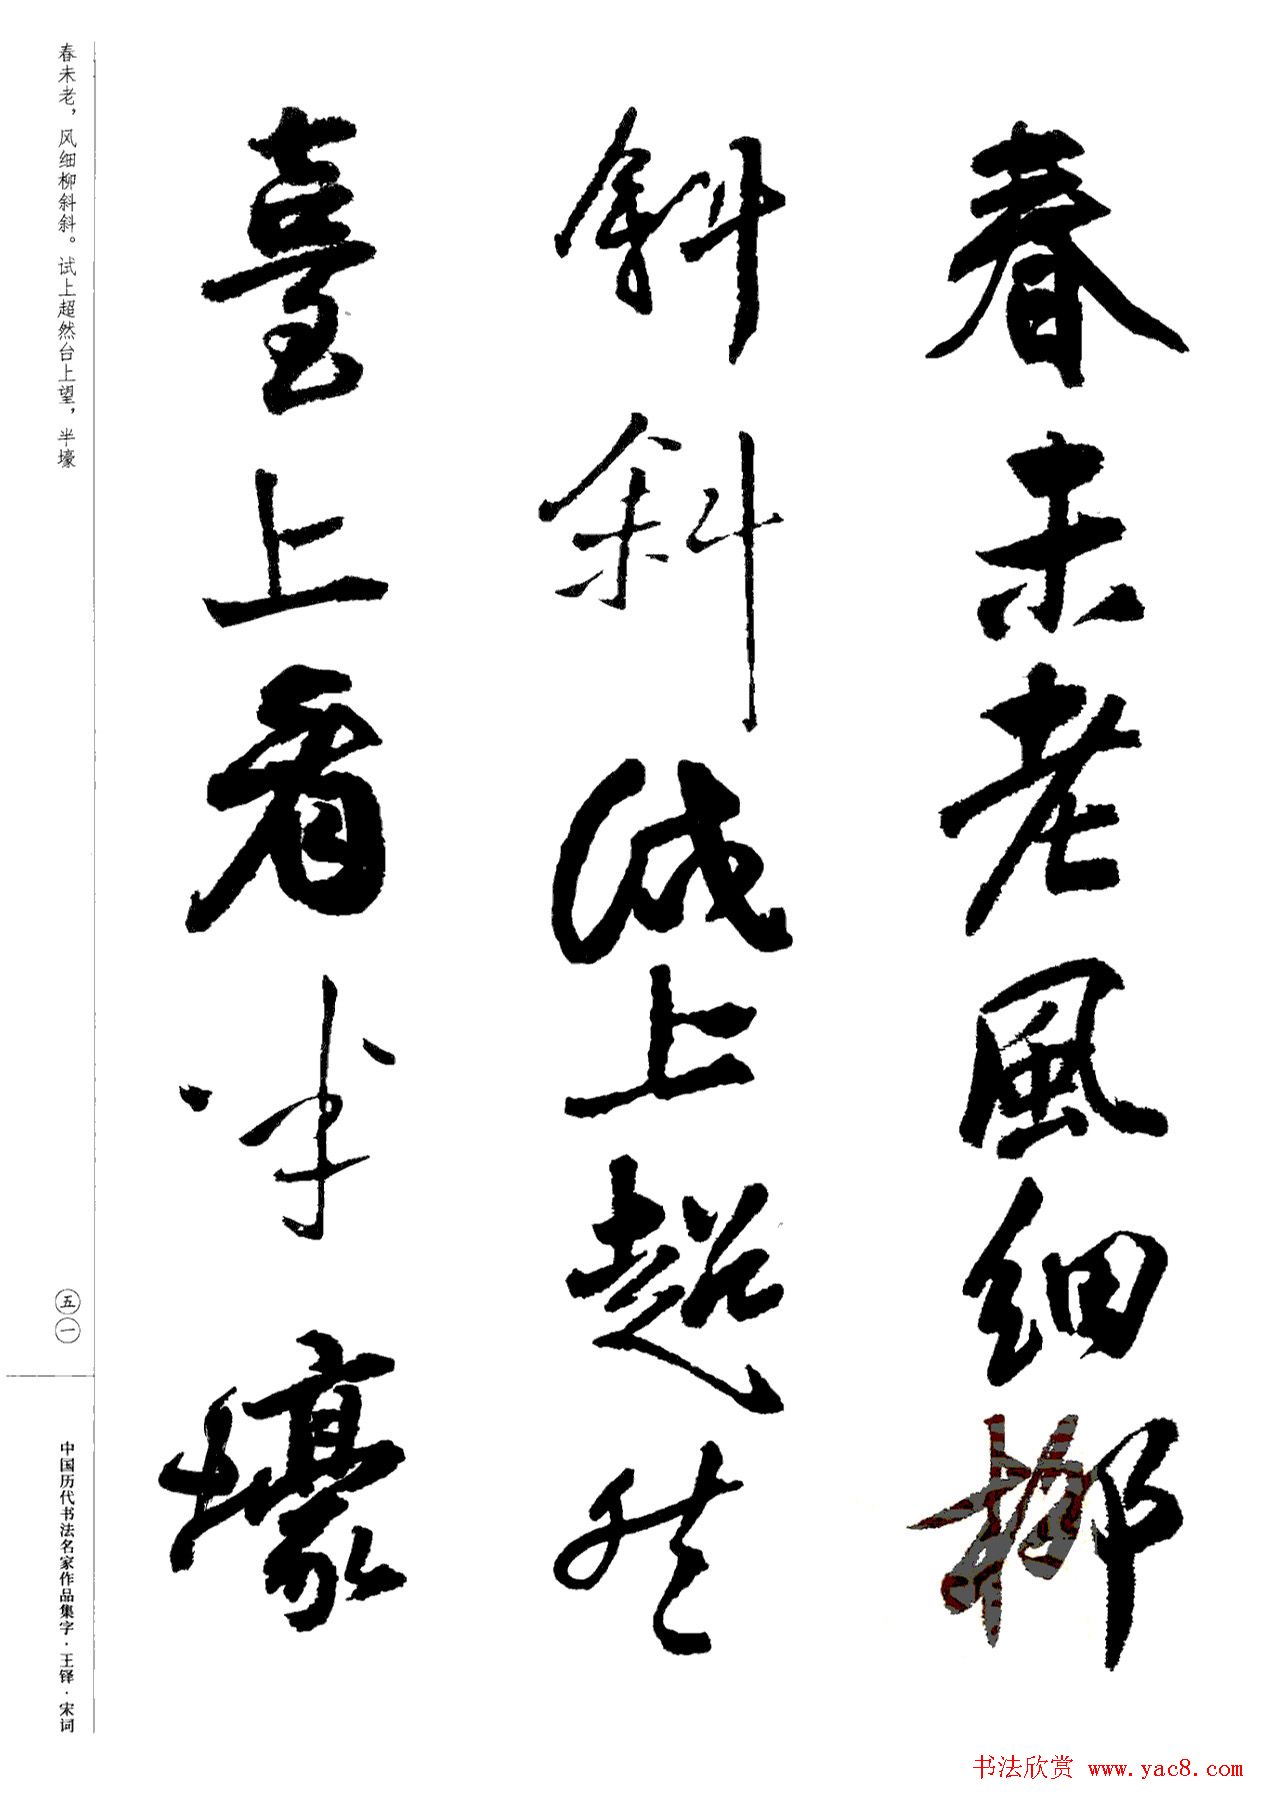 春未老風細柳
斜斜試上超然
臺上看半壕
春未老，风细柳斜斜。试上超然台上望，半壕
五一
中国历代书法名家作品集字·王铎·宋词
书法欣赏 www.yac8.com